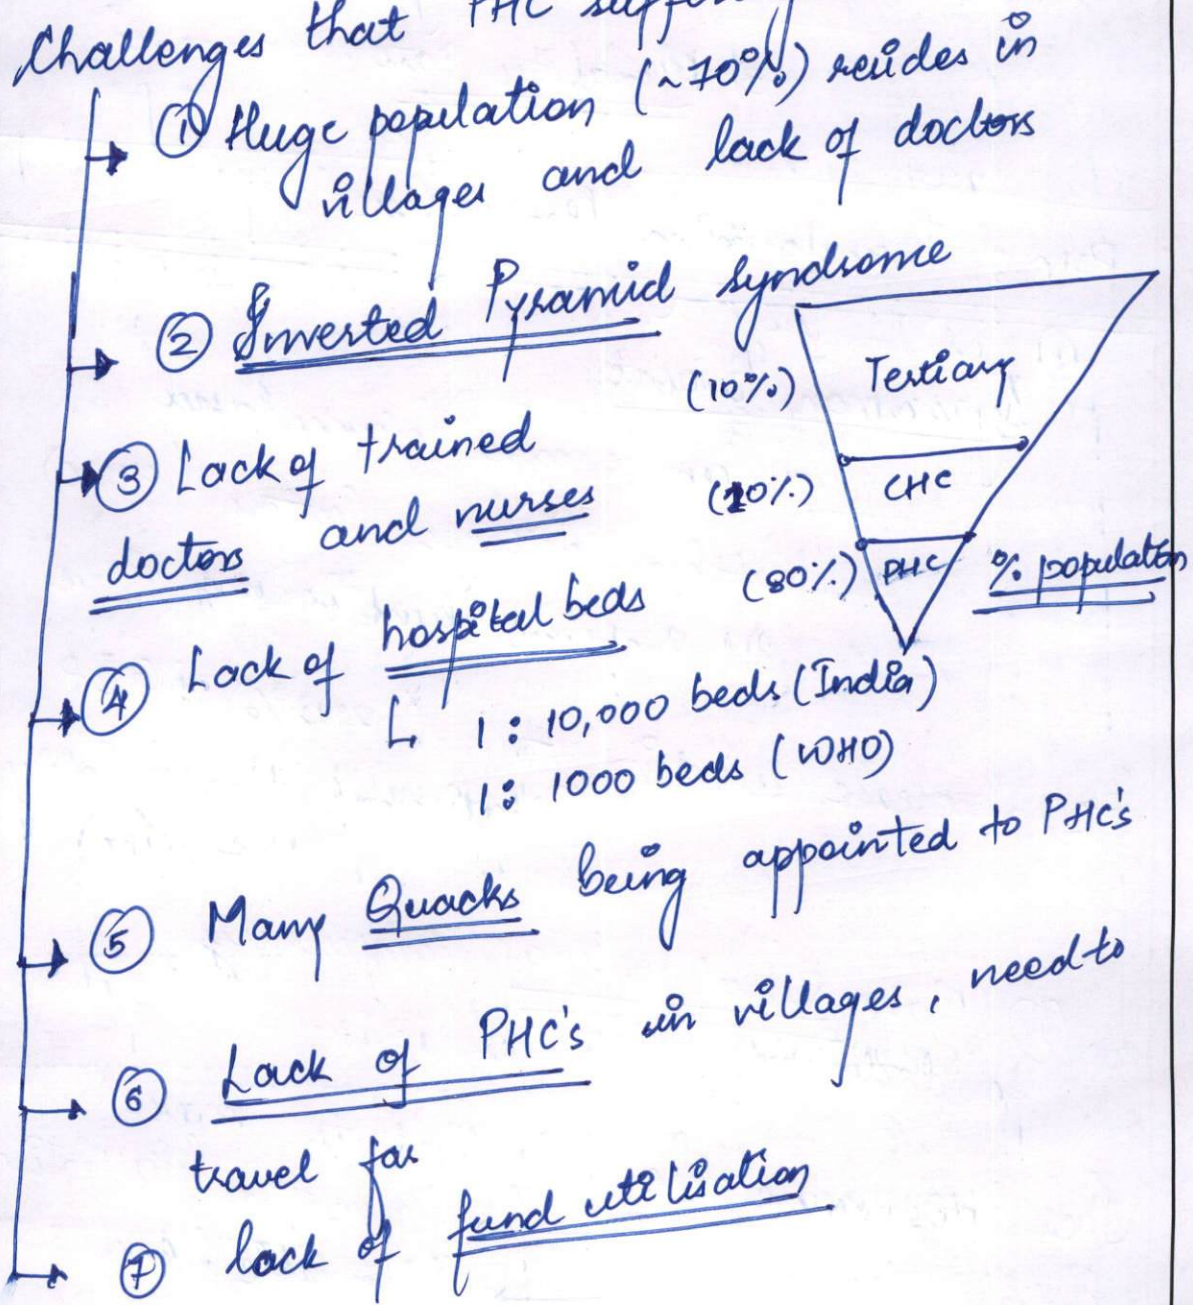 Challenges that PHC
① Huge population (~70%) resides in
villages and lack of doctors
② Inverted Pyramid syndrome
(10%) Tertiary
(20%) CHC
(80%) PHC % population
③ Lack of trained
doctors and nurses
④ Lack of hospital beds
1 : 10,000 beds (India)
1 : 1000 beds (WHO)
⑤ Many Quacks being appointed to PHC's
⑥ Lack of PHC's in villages, need to
travel far
⑦ lack of fund utilisation